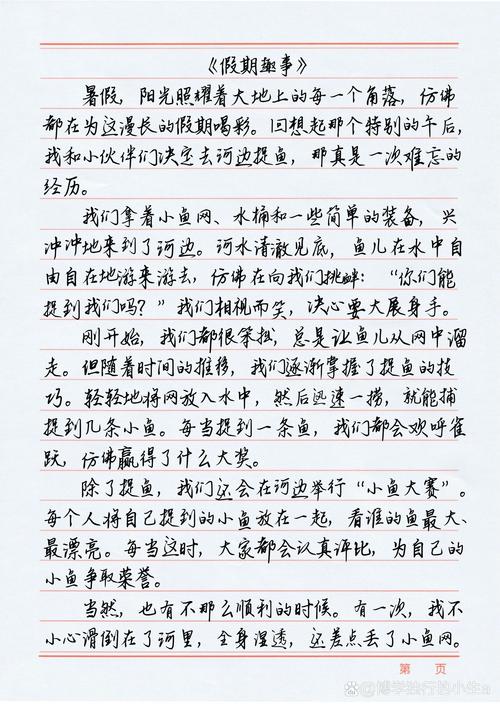 《假期趣事》
暑假，阳光照耀着大地上的每一个角落，仿佛
都在为这漫长的假期喝彩。回想起那个特别的午后，
我和小伙伴们决定去河边捉鱼，那真是一次难忘的
经历。
我们拿着小鱼网、水桶和一些简单的装备，兴
冲冲地来到了河边。河水清澈见底，鱼儿在水中自
由自在地游来游去，仿佛在向我们挑衅：“你们能
捉到我们吗？”我们相视而笑，决心要大展身手。
刚开始，我们都很笨拙，总是让鱼儿从网中溜
走。但随着时间的推移，我们逐渐掌握了捉鱼的技
巧。轻轻地将网放入水中，然后迅速一捞，就能捕
捉到几条小鱼。每当捉到一条鱼，我们都会欢呼雀
跃，仿佛赢得了什么大奖。
除了捉鱼，我们还会在河边举行“小鱼大赛”。
每个人将自己捉到的小鱼放在一起，看谁的鱼最大、
最漂亮。每当这时，大家都会认真评比，为自己的
小鱼争取荣誉。
当然，也有不那么顺利的时候。有一次，我不
小心滑倒在了河里，全身湿透，还差点丢了小鱼网。
第 页